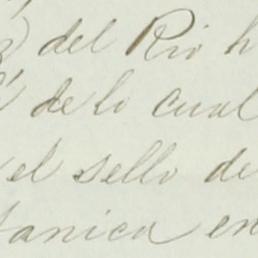 del Rio h
de lo cual
el sello de
tanica en